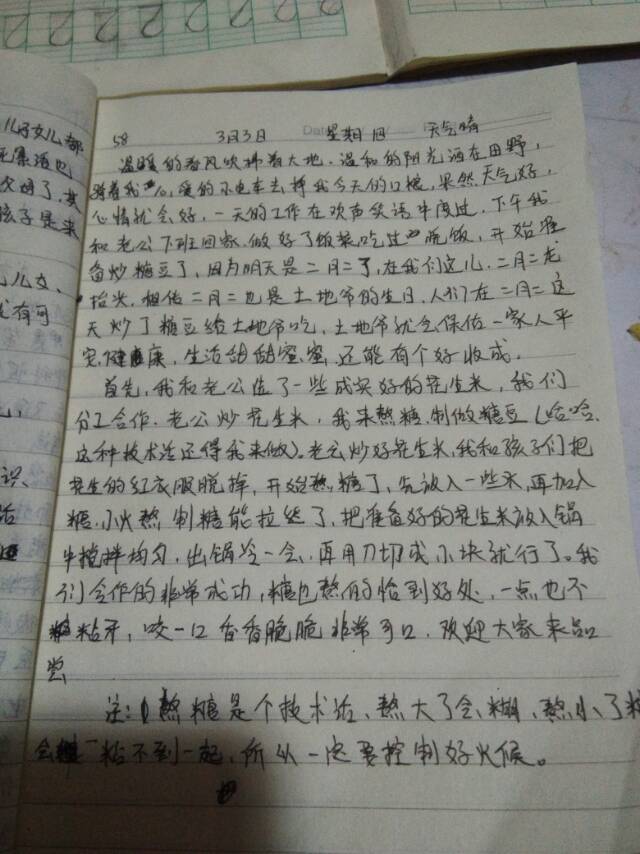 儿子女儿都
58 3月3日 星期四 天气晴
温暖的春风吹拂着大地，温和的阳光洒在田野，
骑着我心爱的小电车去掉我今天的口罩，果然天气好，
心情就会好，一天的工作在欢声笑语中度过，下午我
和老公下班回家，做好了饭菜吃过晚饭，开始准
备炒糖豆了，因为明天是二月二了，在我们这儿，二月二龙
抬头，相传二月二也是土地爷的生日，人们在二月二这
天炒了糖豆给土地爷吃，土地爷就会保佑一家人平
安，健康，生活甜甜蜜蜜，还能有个好收成。
首先，我和老公选了一些成实好的花生米，我们
分工合作，老公炒花生米，我来熬糖，制做糖豆（哈哈，
这种技术活还得我来做）。老公炒好花生米，我和孩子们把
花生的红衣服脱掉，开始熬糖了，先放入一些水，再加入
糖，小火熬制糖能拉丝了，把准备好的花生米放入锅
中搅拌均匀，出锅冷一会，再用刀切成小块就行了。我
们合作的非常成功，糖也熬的恰到好处，一点也不
粘牙，咬一口香香脆脆非常可口，欢迎大家来品
尝
注：熬糖是个技术活，熬大了会糊，熬小了糖
会粘不到一起，所以一定要控制好火候。